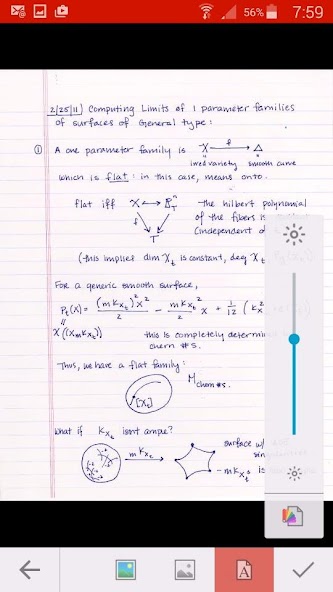 56% 7:59
2/25/11) Computing Limits of 1 parameter families
of surfaces of General type:
① A one parameter family is X —f→ Δ
irred variety smooth curve
which is flat: in this case, means onto.
flat iff X ↔ P^n_T the hilbert polynomial
f of the fibers is
T (independent of t
(this implies dim X_t is constant, deg X_t
For a generic smooth surface,
P_t(X) = (m K_{X_t})² X² / 2 − m K_{X_t}² / 2 X + 1/12 (K²_{X_t}
χ((X_m K_{X_t})) this is completely determin
chern #s.
Thus, we have a flat family:
[X_t] M_{chern #s}.
What if K_{X_t} isnt ample?
m K_{X_t} surface w/
sin
- m K_{X_t}s is
A